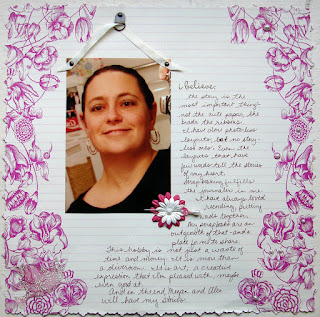 I believe:
the story is the
most important thing -
not the cute paper, the
brads the ribbons.
I have done photo-less
layouts, but no story-
less ones. Even the
layouts that have
few words tell the stories
of my heart.
Scrapbooking fulfills
the journalist in me
I have always loved
recording, putting
words together.
Our scrapbooks are an
outgrowth of that - and a
place to share
This hobby is not just a waste of
time and money. It is more than
a diversion. It is art, a creative
expression that I'm pleased with, maybe
even good at.
And in the end Megan and Alex
will have my stories.